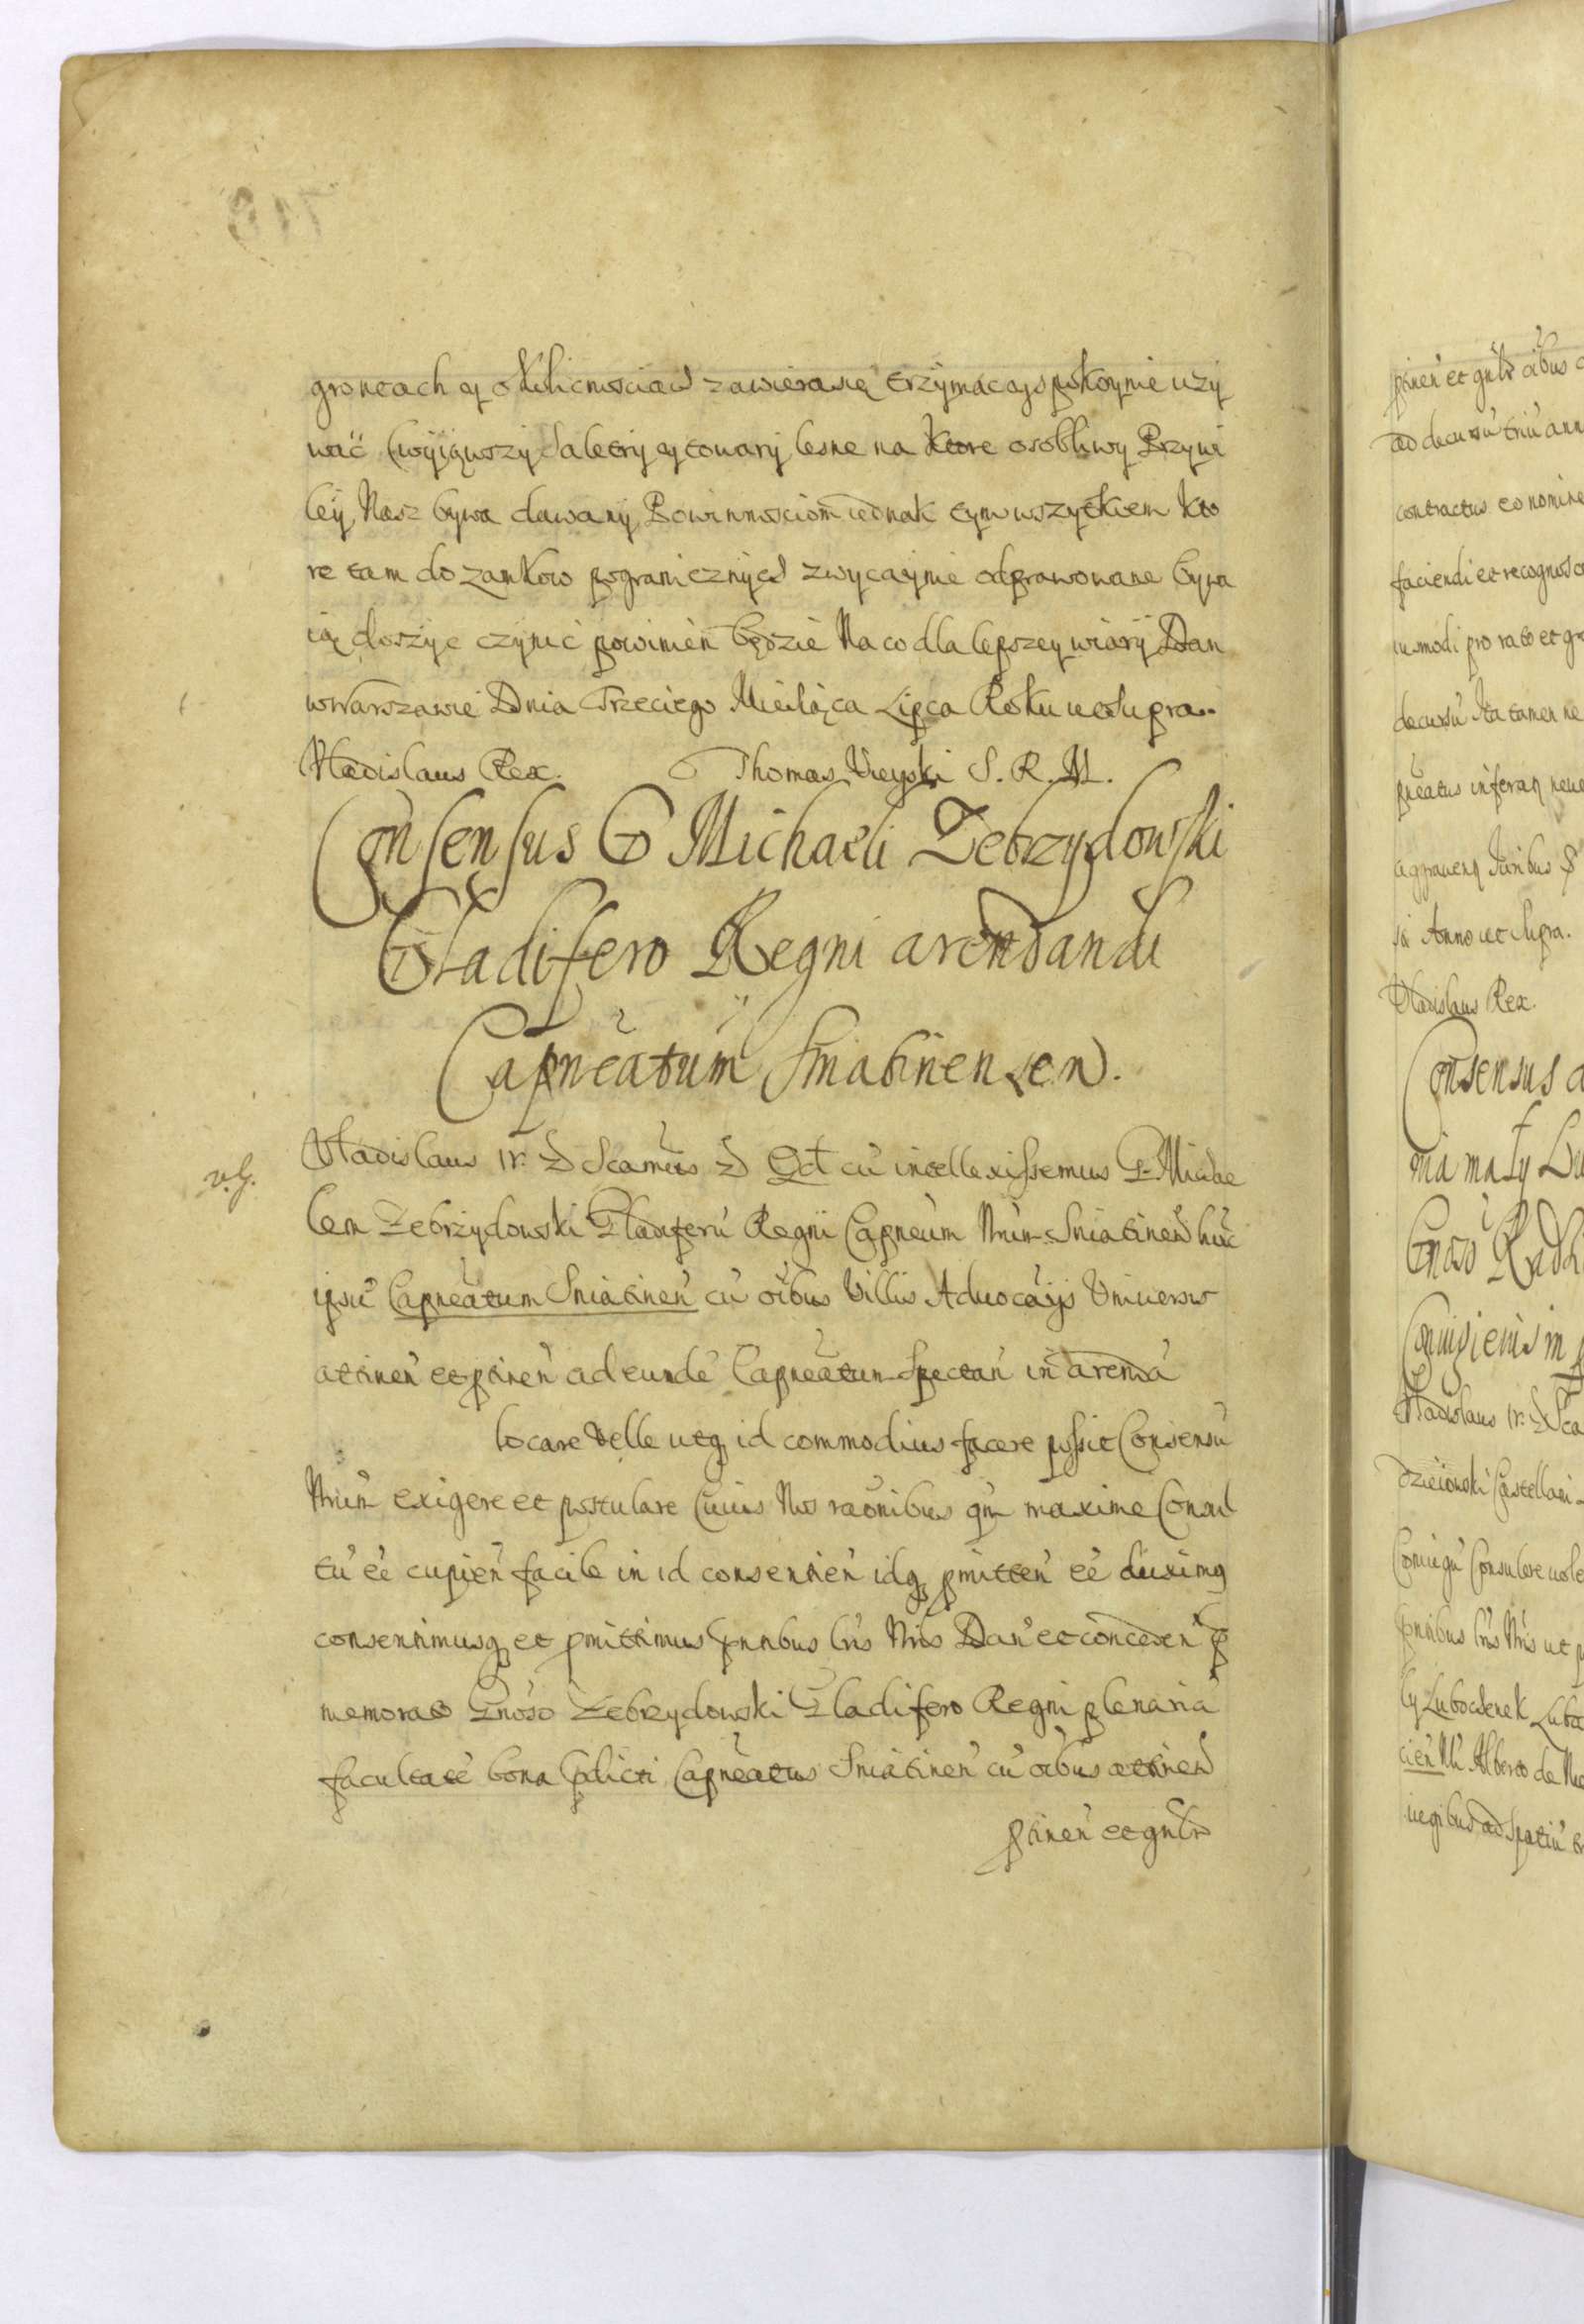 grontach y okolicnosciach zawierasię trzymac y spokoynie uzy
wać (wyiąwszy Saletry y towary lesne na ktore osobliwy Przywi
ley Nasz bywa dawany Powinnosciom iednak tym wszytkiem kto
re tam do zamkow pogranicznych zwyczaynie odprawowane bywa
ią doszyc czynić powinien będzie Na co dla lepszey wiary Dan
w Warszawie Dnia Trzeciego Miesiąca Lipca Roku ut Supra.
Vladislaus Rex. Thomas Uieyski S. R. M.
Consensus G Michaeli Zebrzydowski
Gladifero Regni arendandi
Capneatum Sniatinensen.
Vladislaus IV. Scamus Qd cu intellexissemus G. Michae
v. G.
lem Zebrzydowski Gladiferu Regni Capneum Nrum Sniatinen hunc
ipsu Capneatum Sniatinen cu oibus Villis Aduocatijs Vniuersis
attinen et ptinen ad eunde Capneatum Spectan in arenda
locare velle utq id commodius facere possit Consensu
Nrum exigere et postulare Cuius Nos raonibus qm maxime Consul
tu ee cupien facile in id consentien idq pmitten ee duximq
consentimusq et pmittimus pntibus lris Nris Dan et conceden p
memorato Gnoso Zebrzydowski Gladifero Regni plenaria
facultate bona pdicti Capneatus Sniatinen cu oibus attinen
ptinen et gnlr
ptinen et gnlr oibus
ad decursu triu ann
contractus eo nomine
faciendi et recognosc
decursu Ita tamen ne
pneatus inferan neue
aggrauen Juribus
sia Anno ut Supra.
Vladislaus Rex.
Consensus
Vladislaus IV. Sca
Castellani
Consulere uole
pntibus lris Nris ut
cien Alberto de
iegibus ad spatiu